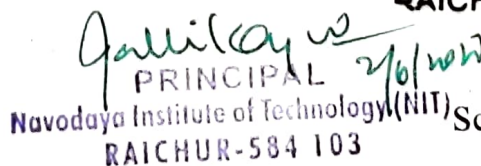 RAICH
PRINCIPAL
Navodaya Institute of Technology (NIT) Sc
RAICHUR-584 103